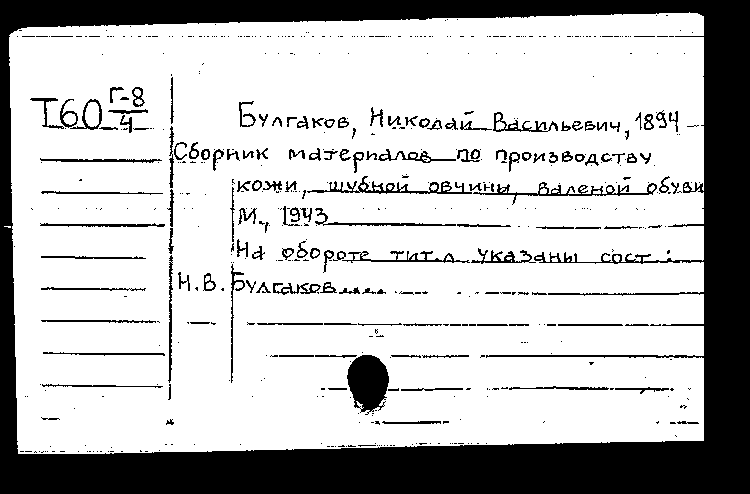 Т60 Г-8/4
Булгаков, Николай Васильевич, 1894
Сборник материалов по производству
кожи, шубной овчины, валеной обуви
М., 1943
На обороте тит.л указаны сост.:
Н.В. Булгаков....